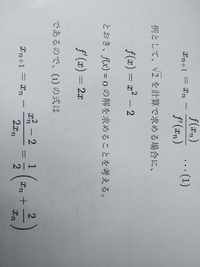 xₙ₊₁ = xₙ − f(xₙ)/f′(xₙ) …(1)
例として、√2 を計算で求める場合に、
f(x) = x² − 2
とおき、f(x)=0 の解を求めることを考える。
f′(x) = 2x
であるので、(1) の式は
xₙ₊₁ = xₙ − (xₙ² − 2)/(2xₙ) = 1/2 (xₙ + 2/xₙ)